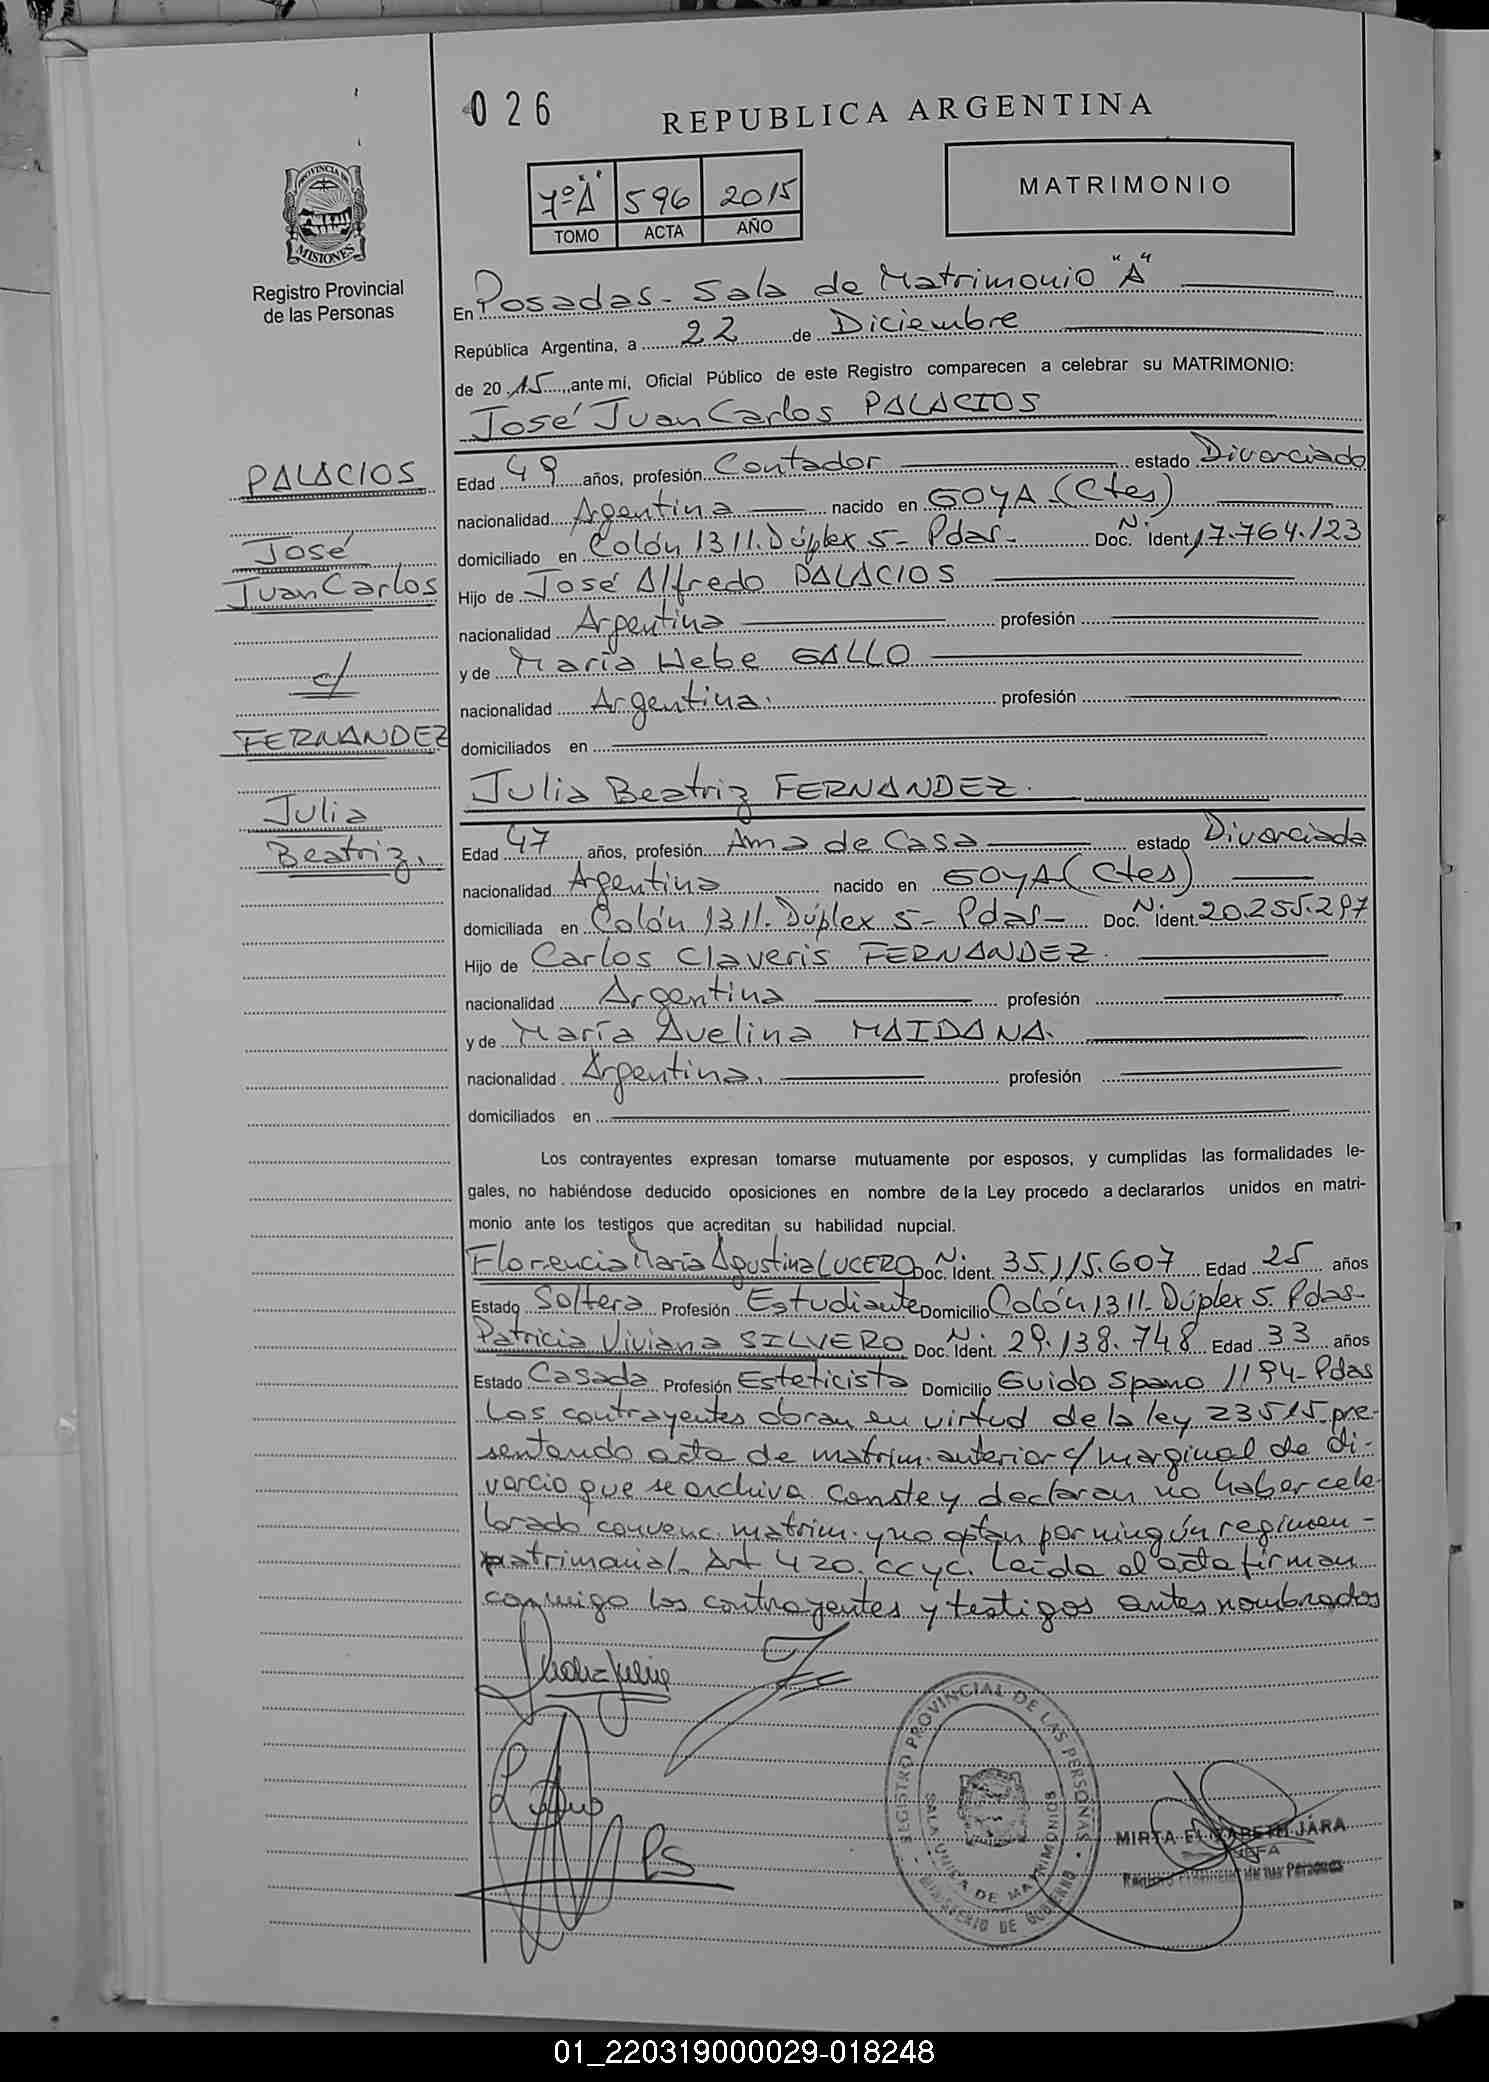 026
REPUBLICA ARGENTINA
PROVINCIA DE
MISIONES
Registro Provincial
de las Personas
7º "A" 596 2015
TOMO ACTA AÑO
MATRIMONIO
En Posadas - Sala de Matrimonio "A"
República Argentina, a 22 de Diciembre
de 2015, ante mí, Oficial Público de este Registro comparecen a celebrar su MATRIMONIO:
José Juan Carlos PALACIOS
PALACIOS
José
Juan Carlos
c/
FERNANDEZ
Julia
Beatriz.
Edad 49 años, profesión Contador estado Divorciado
nacionalidad Argentina nacido en GOYA (Ctes)
domiciliado en Colón 1311. Dúplex 5 - Pdas - Doc. Nº Ident. 17.764.123
Hijo de José Alfredo PALACIOS
nacionalidad Argentina profesión
y de María Hebe GALLO
nacionalidad Argentina. profesión
domiciliados en
Julia Beatriz FERNANDEZ.
Edad 47 años, profesión Ama de Casa estado Divorciada
nacionalidad Argentina nacido en GOYA (Ctes)
domiciliada en Colón 1311. Dúplex 5 - Pdas - Doc. Nº Ident. 20.255.297
Hijo de Carlos Claveris FERNANDEZ.
nacionalidad Argentina profesión
y de María Avelina MAIDANA.
nacionalidad Argentina. profesión
domiciliados en
Los contrayentes expresan tomarse mutuamente por esposos, y cumplidas las formalidades le-
gales, no habiéndose deducido oposiciones en nombre de la Ley procedo a declararlos unidos en matri-
monio ante los testigos que acreditan su habilidad nupcial.
Florencia María Agustina LUCERO Doc. Nº Ident. 35.115.607 Edad 25 años
Estado Soltera Profesión Estudiante Domicilio Colón 1311 - Dúplex 5. Pdas -
Patricia Viviana SILVERO Doc. Nº Ident. 29.138.748 Edad 33 años
Estado Casada Profesión Esteticista Domicilio Guido Spano 1194 - Pdas
Los contrayentes obran en virtud de la ley 23515 pre-
sentando acta de matrim. anterior c/ marginal de di-
vorcio que se archiva conste y declaran no haber cele-
brado convenc. matrim. y no optan por ningún regimen -
patrimonial. Art 420. CCyC. Leída el acta firman
conmigo los contrayentes y testigos antes nombrados
REGISTRO PROVINCIAL DE LAS PERSONAS
SALA UNICA DE MATRIMONIOS
MINISTERIO DE GOBIERNO
MIRTA ELIZABETH JARA
JEFA
Registro Provincial de las Personas
01_220319000029-018248